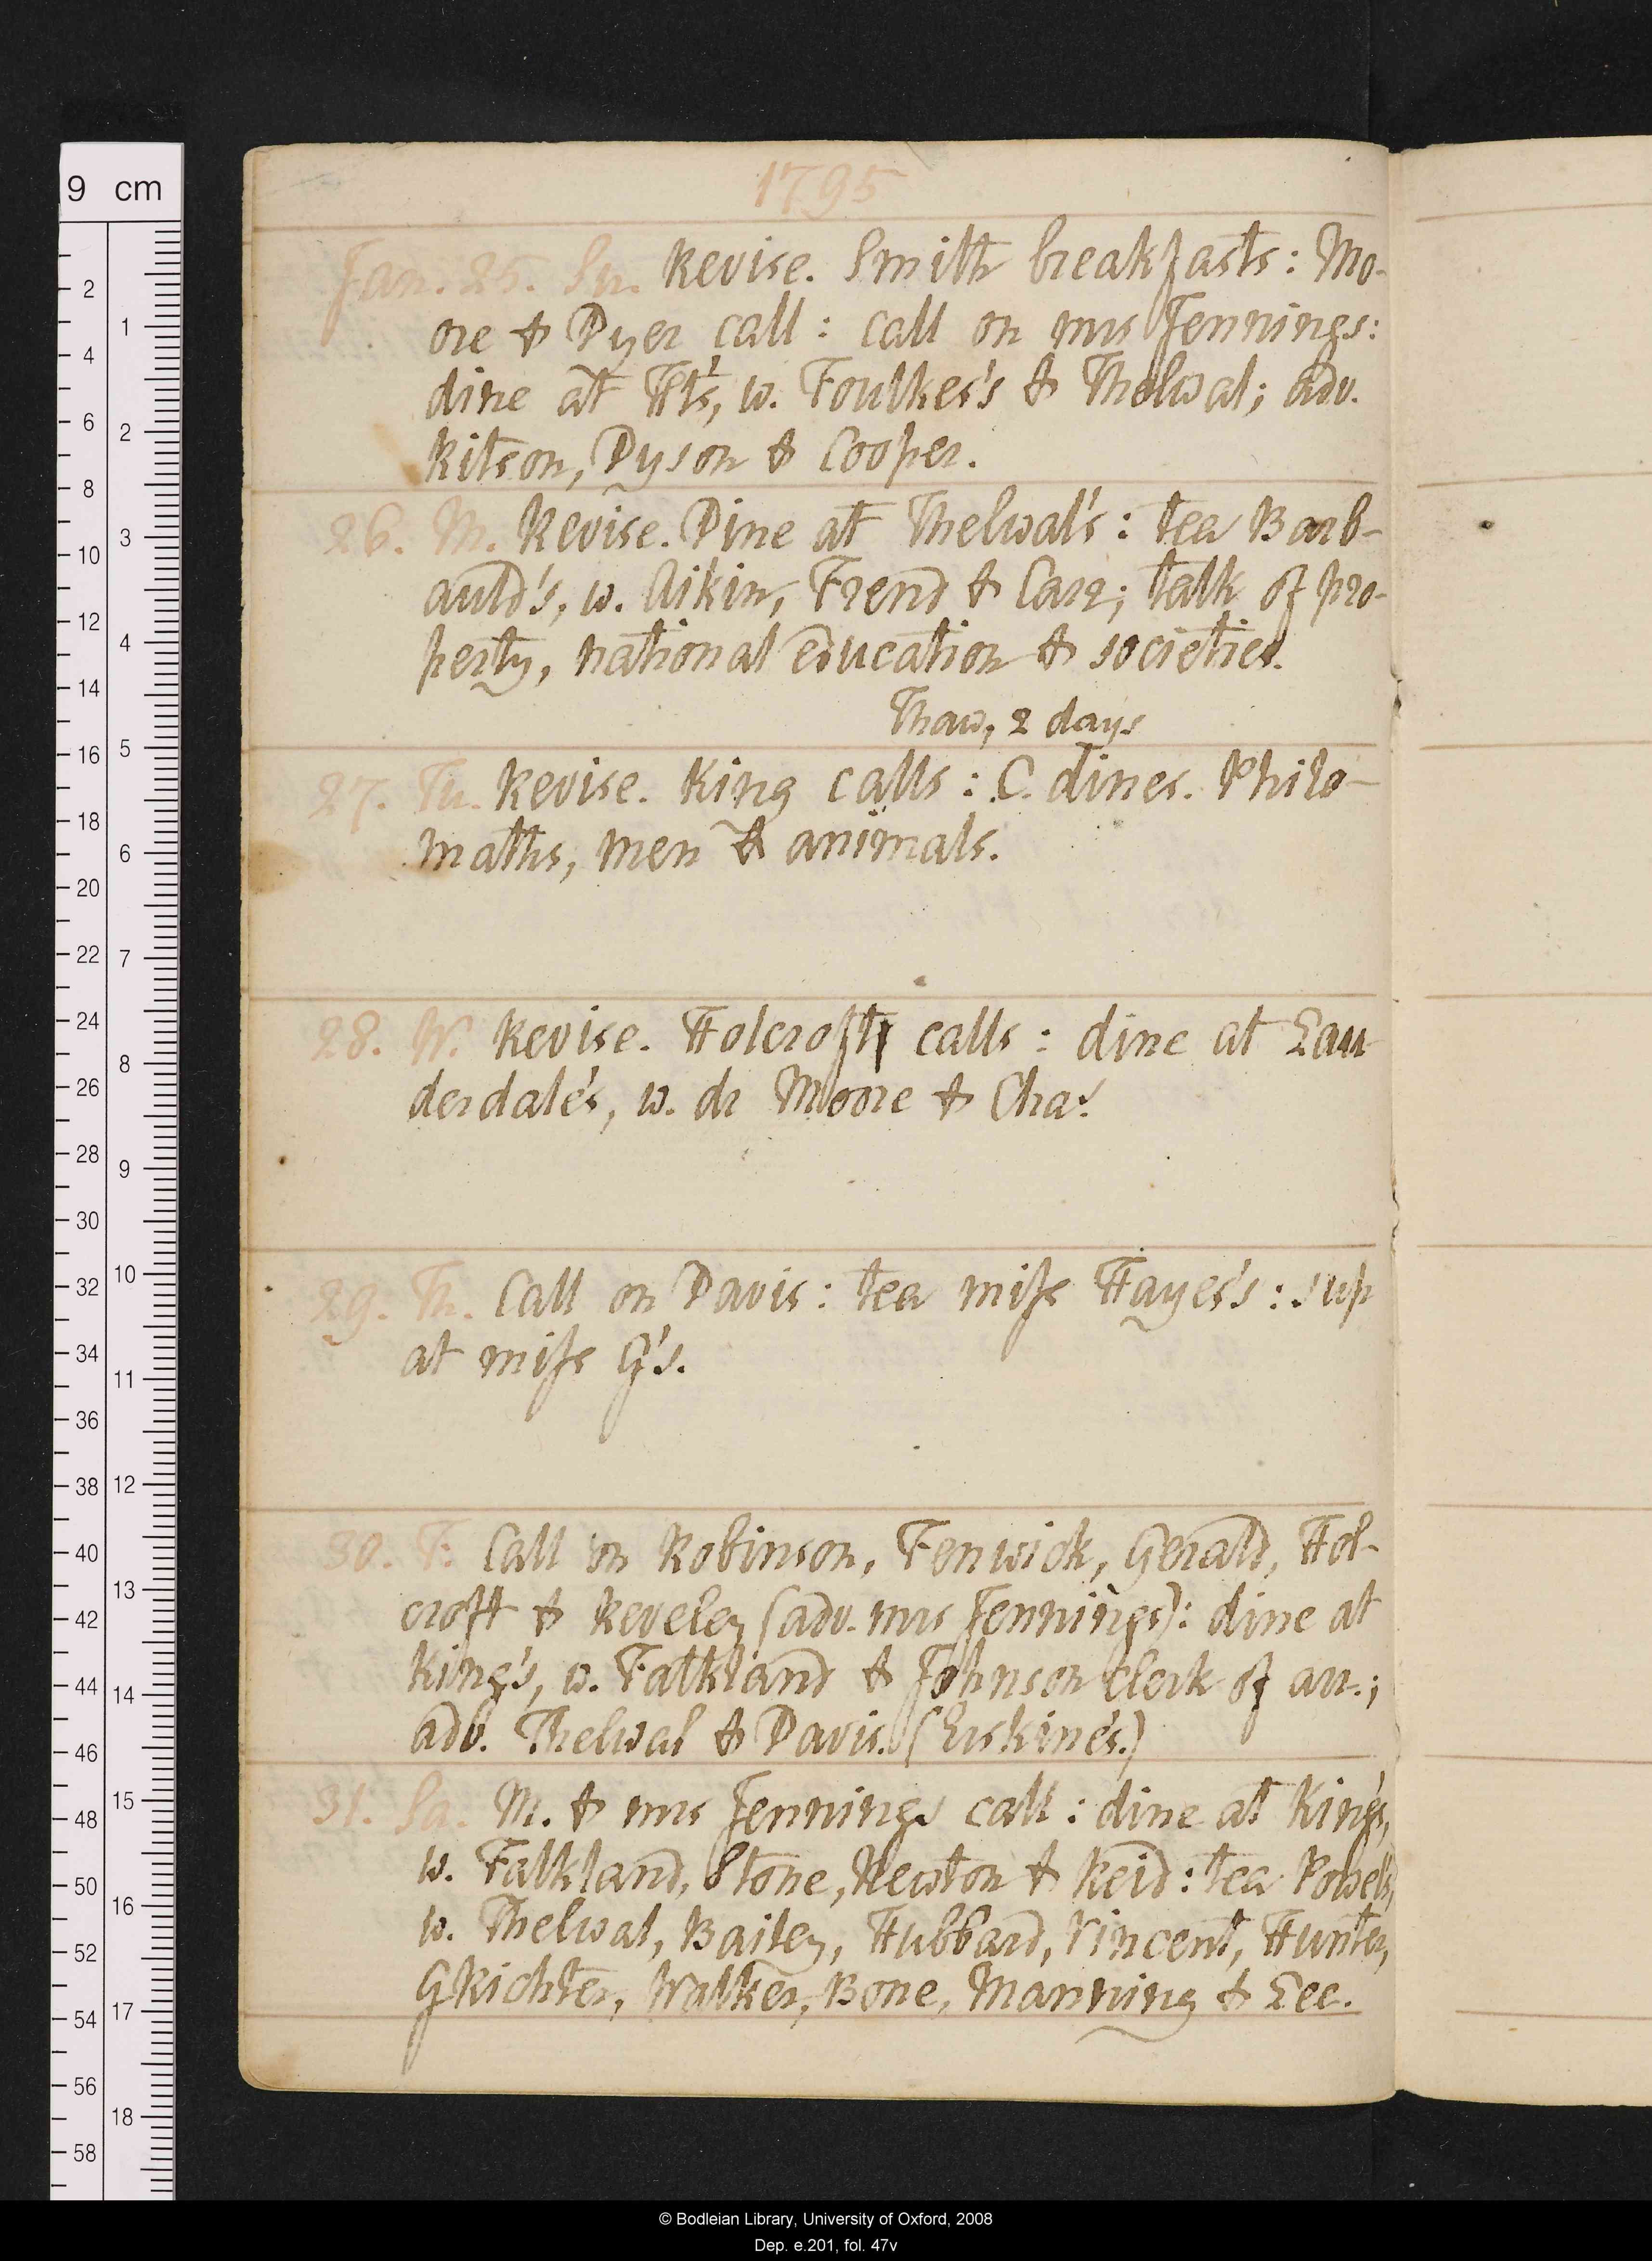 1795
Jan. 25. Su. Revise. Smith breakfasts: Mo-
ore & Dyer call: call on mrs Jennings:
dine at Ht's, w. Foulkes's & Thelwal; adv.
Ritson, Dyson & Cooper.
26. M. Revise. Dine at Thelwal's: tea Barb-
auld's, w. Aikin, Frend & Carr; talk of pro-
perty, national education & societies.
Thaw, 2 days
27. Tu. Revise. King calls: C. dines. Philo-
maths, men & animals.
28. W. Revise. Holcroft calls: dine at Lau
derdale's, w. dr Moore & Chas.
29. Th. Call on Davis: tea miſs Hayes's: sup
at miſs G's.
30. F. Call on Robinson, Fenwick, Gerald, Hol-
croft & Reveley (adv. mrs Jennings): dine at
King's, w. Falkland & Johnson clerk of arr.;
adv. Thelwal & Davis. (Erskine's.)
31. Sa. M. & mrs Jennings call: dine at King's,
w. Falkland, Stone, Newton & Reid: tea Powel's,
w. Thelwal, Bailey, Hubbard, Vincent, Hunter,
G Richter, Walker, Bone, Manning & Lee.
9 cm
2
4
6
8
10
12
14
16
18
20
22
24
26
28
30
32
34
36
38
40
42
44
46
48
50
52
54
56
58
1
2
3
4
5
6
7
8
9
10
11
12
13
14
15
16
17
18
© Bodleian Library, University of Oxford, 2008
Dep. e.201, fol. 47v